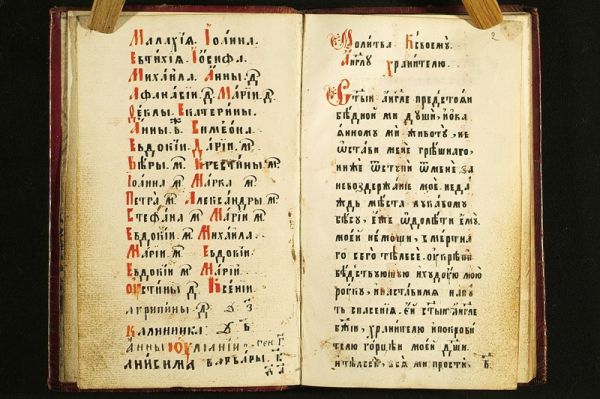 Малахїѧ. Їоанна.
Евтихїѧ. Їосифа.
Михаила. Анны. д҃
Афанасїи. д҃ Марїи. д҃
Ѳеклы. Екатерины.
Анны. в҃. Симеона.
Евдокїи. Дарїи. м҃
Вѣры. м҃ Христины. м҃
Їоанна м҃ Марка м҃
Петра м҃ Александры м҃
Стефана м҃ Марїи м҃
Евдокїи. м҃ Михаила.
Марїи. м҃ Евдокїи.
Евдокїи м҃ Марїи.
Ѹстины д҃ Ксенїи.
Агрипины д҃
Калинника
Анны Їѹлїанїи
Анисима Варвары. в҃
2
Молитва Ксвоемꙋ.
Аг҃глꙋ Хранителю.
С҃тыи а҃гг҃ле предстоѧи
бѣднои ми дꙋши, иока
ѧнномꙋ ми животꙋ, не
ѡстави мене грѣшнаго,
ниже ѿстꙋпи ѿмене за
невоздержанїе мое. неда
ждь мѣста лꙋкавомꙋ
бѣсꙋ, еже ѡдолѣти емꙋ
моеи немощи, вмертвѣ
го сего тѣлесе. ꙋкрѣпи
бѣдствꙋющꙋю ихꙋдꙋю мою
рꙋкꙋ, инаставимѧ напꙋ
ть спасенїѧ. еи с҃тыи а҃гг҃ле
бж҃їи, хранителю ипокрови
телю горцѣи моеи дꙋши.
итѣлесе, всѧ ми прости,